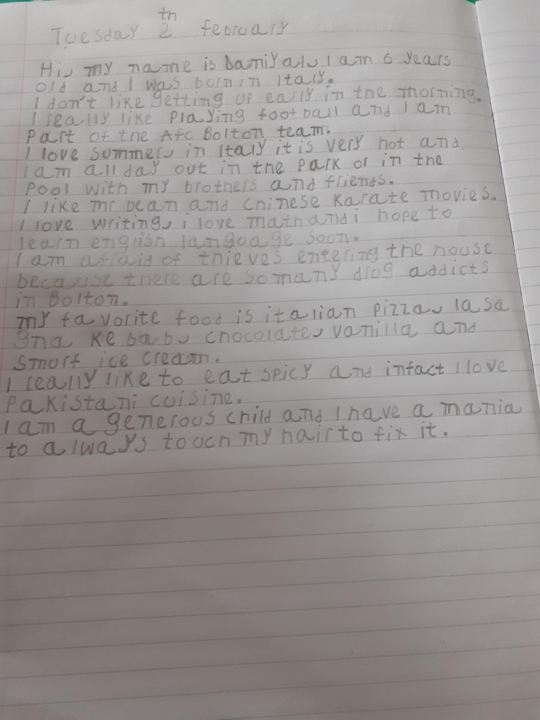 Tuesday 2th february
Hi, my name is baniyal, I am 6 years
old and I was born in Italy.
I don't like getting up early in the morning.
I really like playing football and I am
part of the Afc Bolton team.
I love summer, in Italy it is very hot and
I am all day out in the park or in the
pool with my brothers and friends.
I like mr bean and chinese karate movies.
I love writing, i love math and i hope to
learn english language soon.
I am afraid of thieves entering the house
because there are so many drug addicts
in Bolton.
my favorite food is italian pizza, lasa
gna kebab, chocolate, vanilla and
smurf ice cream.
I really like to eat spicy and infact I love
pakistani cuisine.
I am a generous child and I have a mania
to always touch my hair to fix it.